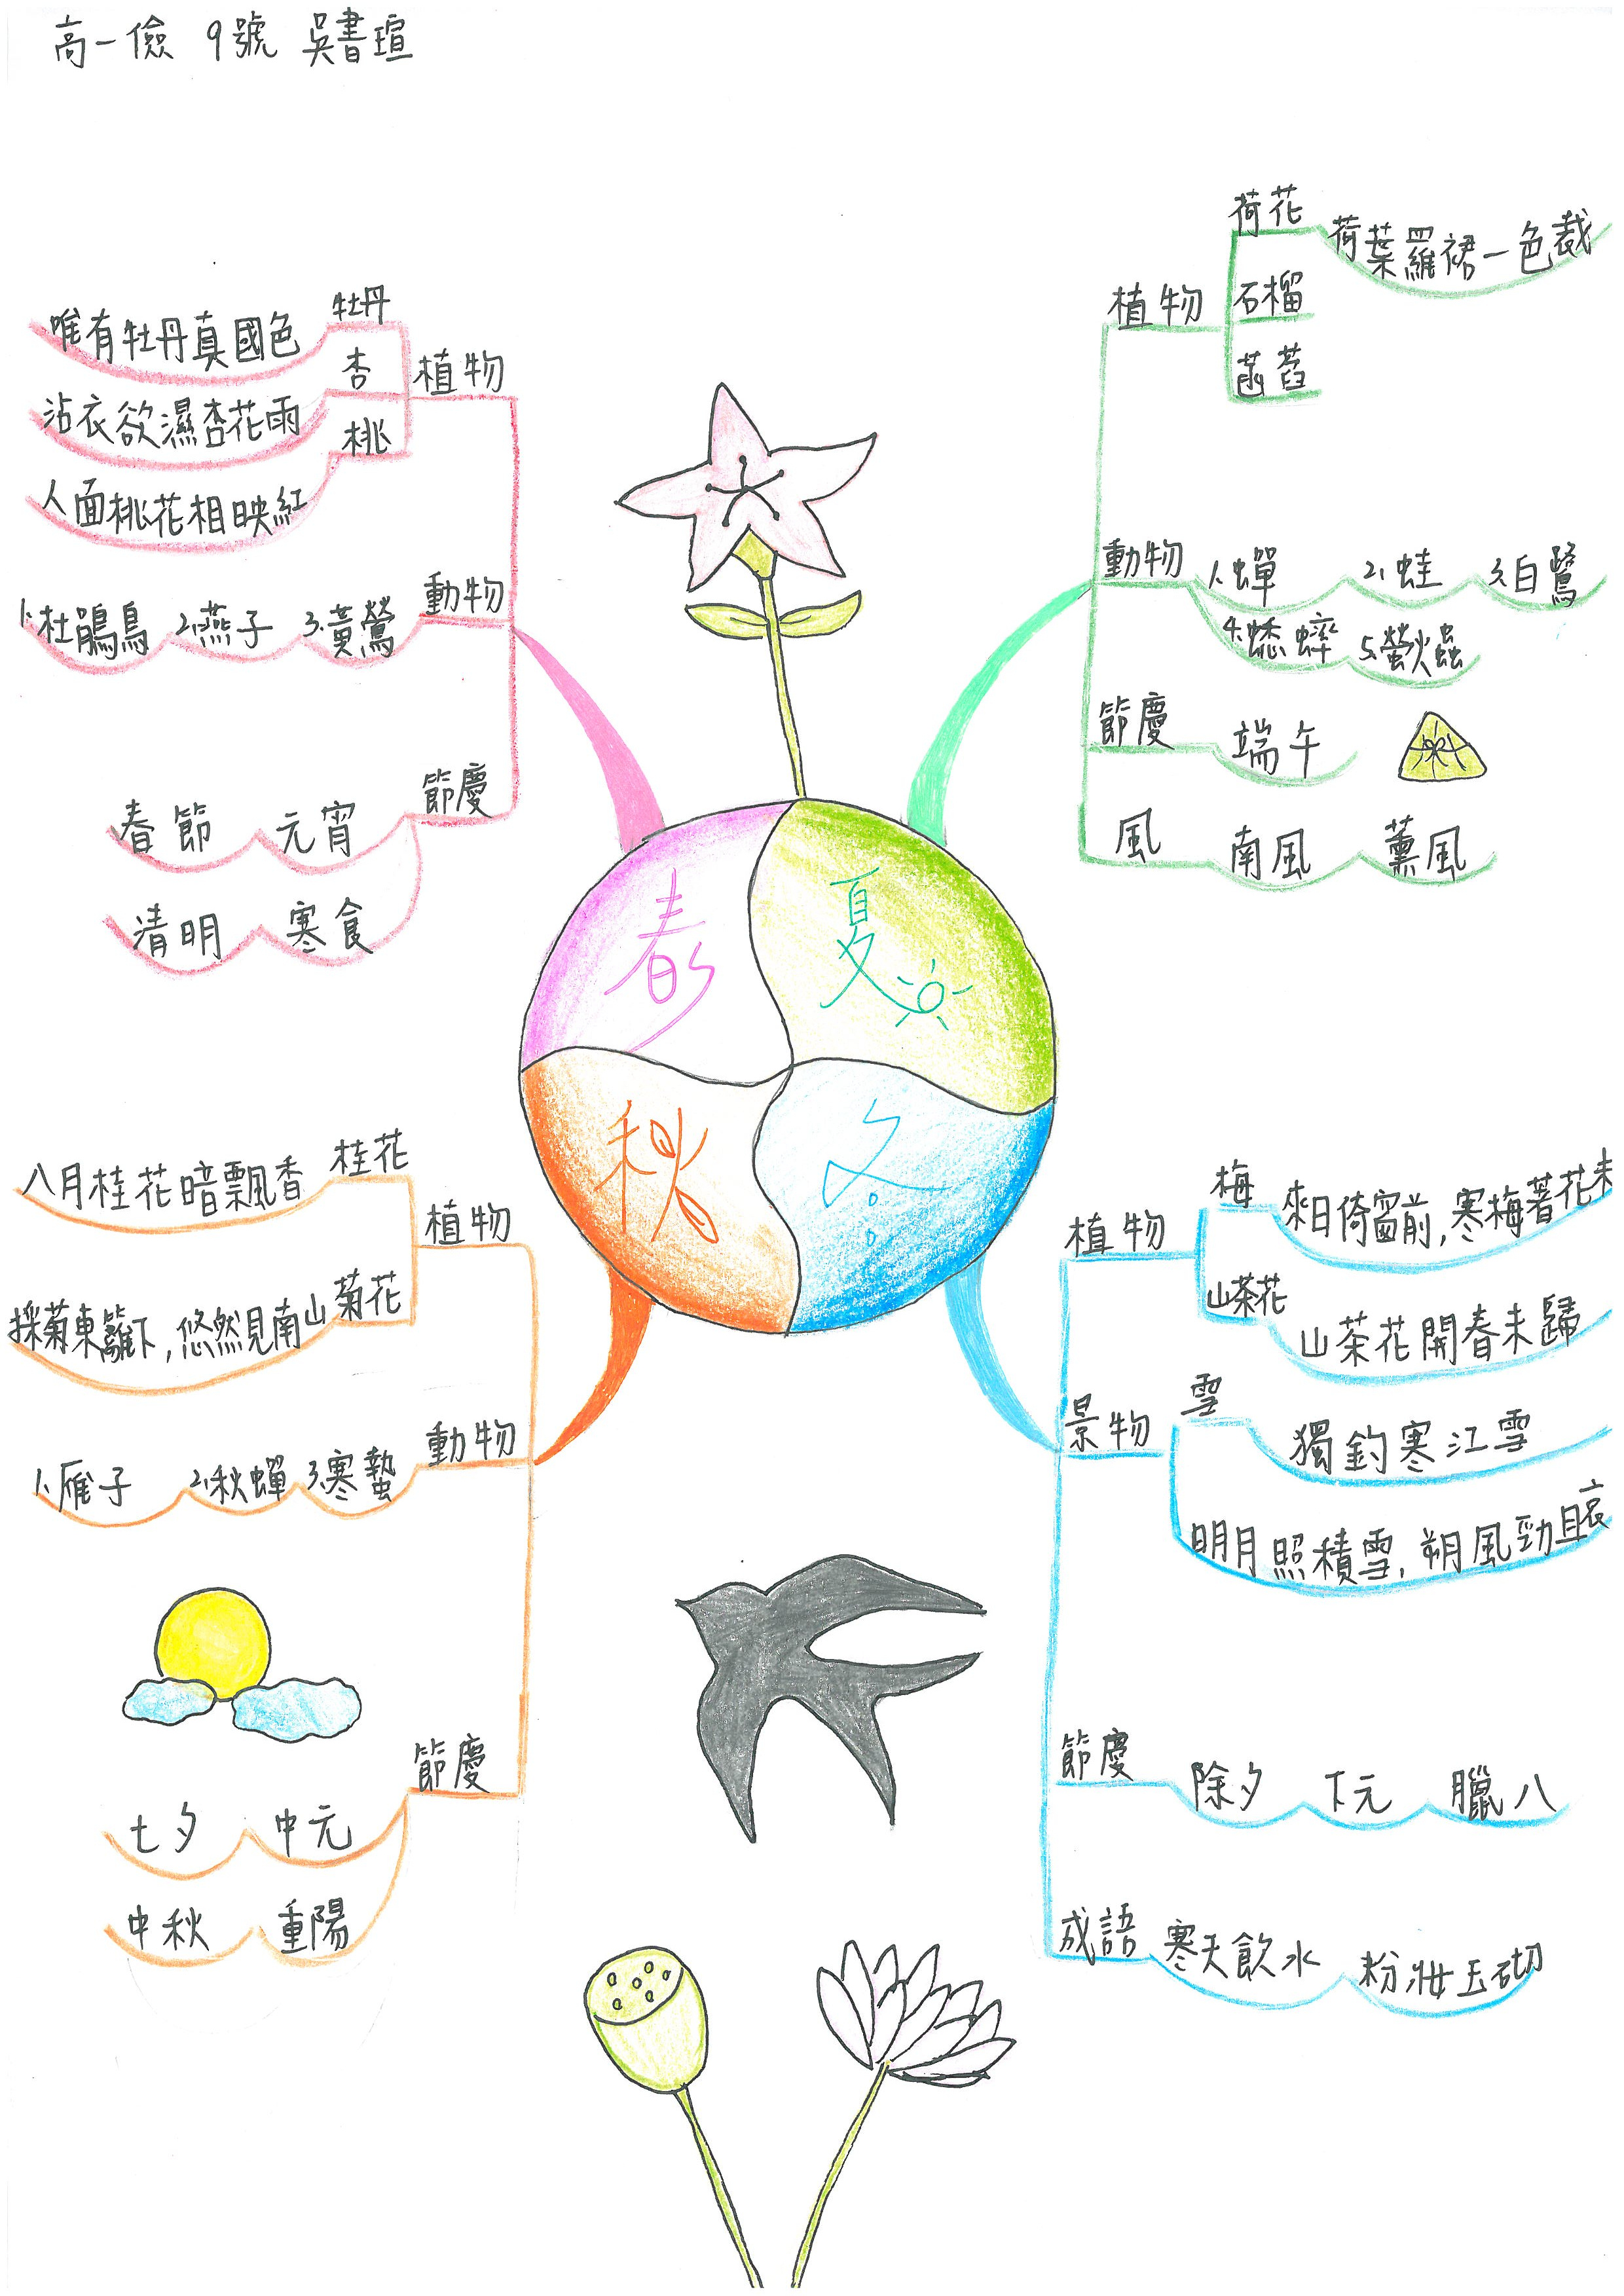 高一儉 9號 吳書瑄
春
植物
牡丹
唯有牡丹真國色
杏
沾衣欲濕杏花雨
桃
人面桃花相映紅
動物
1.杜鵑鳥 2.燕子 3.黃鶯
節慶
春節 元宵
清明 寒食
夏
植物
荷花
荷葉羅裙一色裁
石榴
菡萏
動物
1.蟬 2.蛙 3.白鷺
4.蟋蟀 5.螢火蟲
節慶
端午
風
南風 薰風
秋
植物
桂花
八月桂花暗飄香
菊花
採菊東籬下,悠然見南山
動物
1.雁子 2.秋蟬 3.寒蟄
節慶
七夕 中元
中秋 重陽
冬
植物
梅
來日倚窗前,寒梅著花未
山茶花
山茶花開春未歸
景物
雪
獨釣寒江雪
明月照積雪,朔風勁且哀
節慶
除夕 下元 臘八
成語
寒天飲水 粉妝玉砌